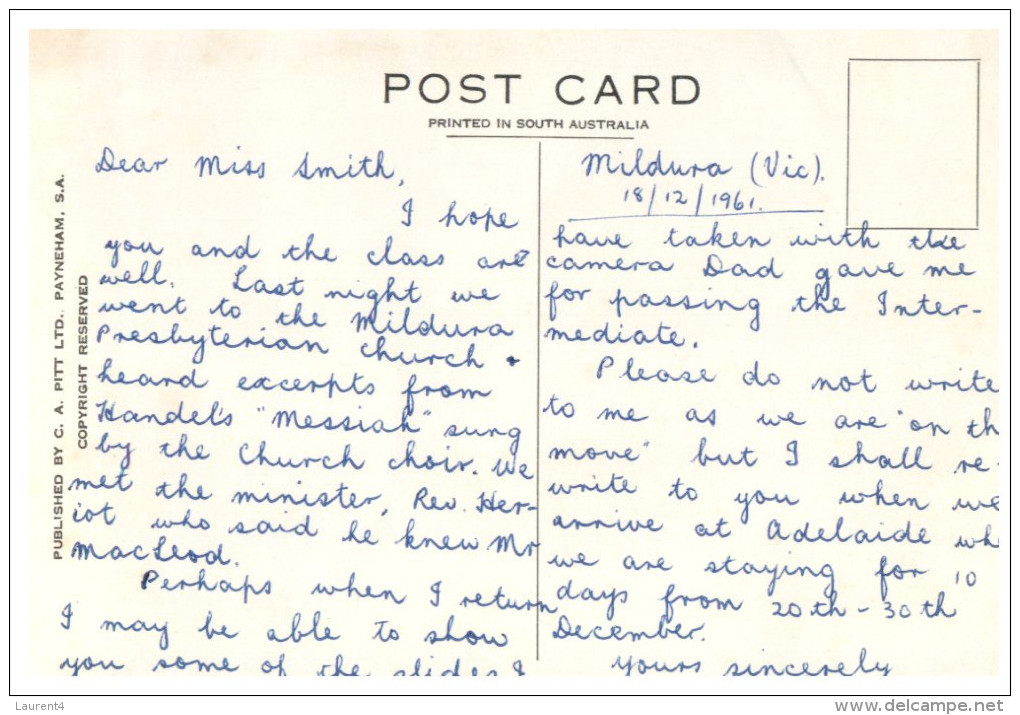 POST CARD
PRINTED IN SOUTH AUSTRALIA
PUBLISHED BY C. A. PITT LTD., PAYNEHAM, S.A.
COPYRIGHT RESERVED
Dear Miss Smith,
I hope
you and the class are
well. Last night we
went to the Mildura
Presbyterian Church +
heard excerpts from
Handel's "Messiah" sung
by the Church choir. We
met the minister, Rev. Her-
iot who said he knew Mr
MacLeod.
Perhaps when I return
I may be able to show
you some of the slides I
Mildura (Vic).
18/12/1961.
have taken with the
camera Dad gave me
for passing the Inter-
mediate.
Please do not write
to me as we are "on th
move" but I shall re-
write to you when we
arrive at Adelaide wh
we are staying for 10
days from 20th - 30th
December.
yours sincerely
Laurent4
www.delcampe.net